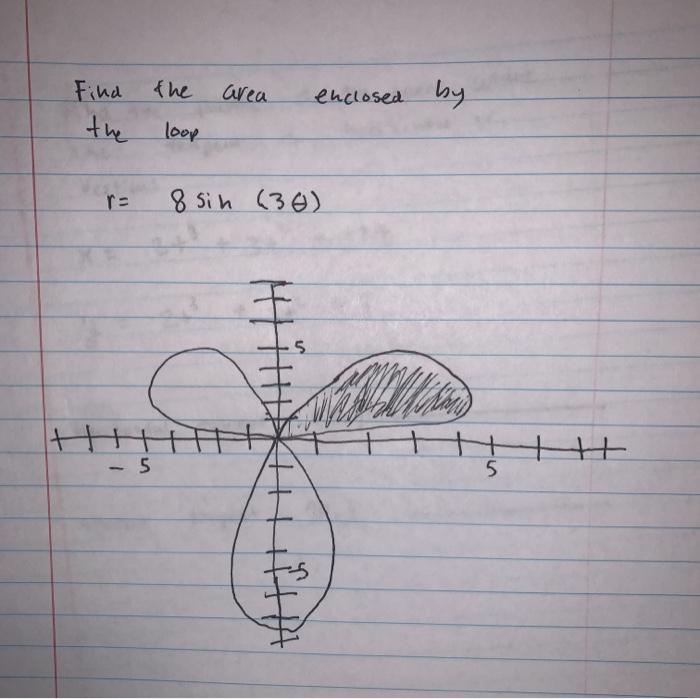 Find the area enclosed by
the loop
r= 8 sin (3θ)
5
- 5
5
-5